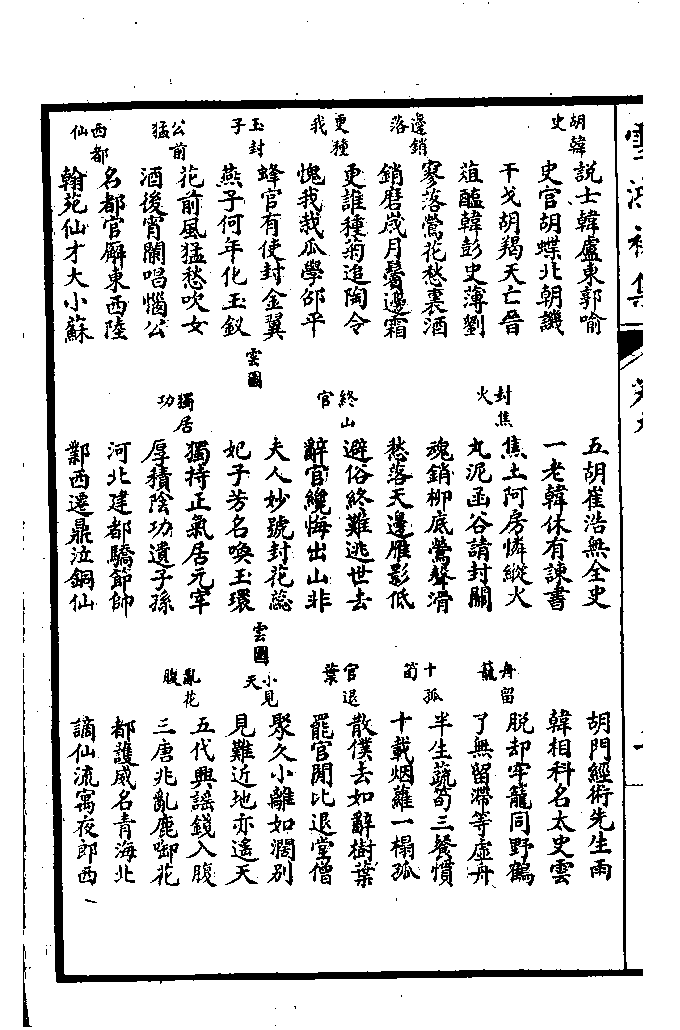 胡韓史
說士韓盧東郭喻
史官胡蝶北朝譏
干戈胡羯天亡晉
菹醢韓彭史薄劉
邊銷落
寥落鶯花愁裏酒
銷磨歲月鬢邊霜
更種我
更誰種菊追陶令
愧我栽瓜學邵平
玉封子
蜂官有使封金翼
燕子何年化玉釵
公前猛
花前風猛愁吹女
酒後宵闌唱惱公
西都仙
名都官廨東西陸
翰苑仙才大小蘇
五胡崔浩無全史
一老韓休有諫書
封焦火
焦土阿房憐縱火
丸泥函谷請封關
魂銷柳底鶯聲滑
愁落天邊雁影低
終山官
避俗終難逃世去
辭官纔悔出山非
雲國
夫人妙號封花蕊
妃子芳名喚玉環
獨居功
獨持正氣居元宰
厚積陰功遺子孫
河北建都驕節帥
鄴西遷鼎泣銅仙
胡門經術先生雨
韓相科名太史雲
舟留籠
脫却牢籠同野鶴
了無留滯等虛舟
十孤筍
半生蔬筍三餐慣
十載烟蘿一榻孤
官退葉
散僕去如辭樹葉
罷官閒比退堂僧
雲國
小見天
聚久小離如濶別
見難近地亦遙天
亂花腹
五代興謠錢入腹
三唐兆亂鹿啣花
都護威名青海北
謫仙流寓夜郎西